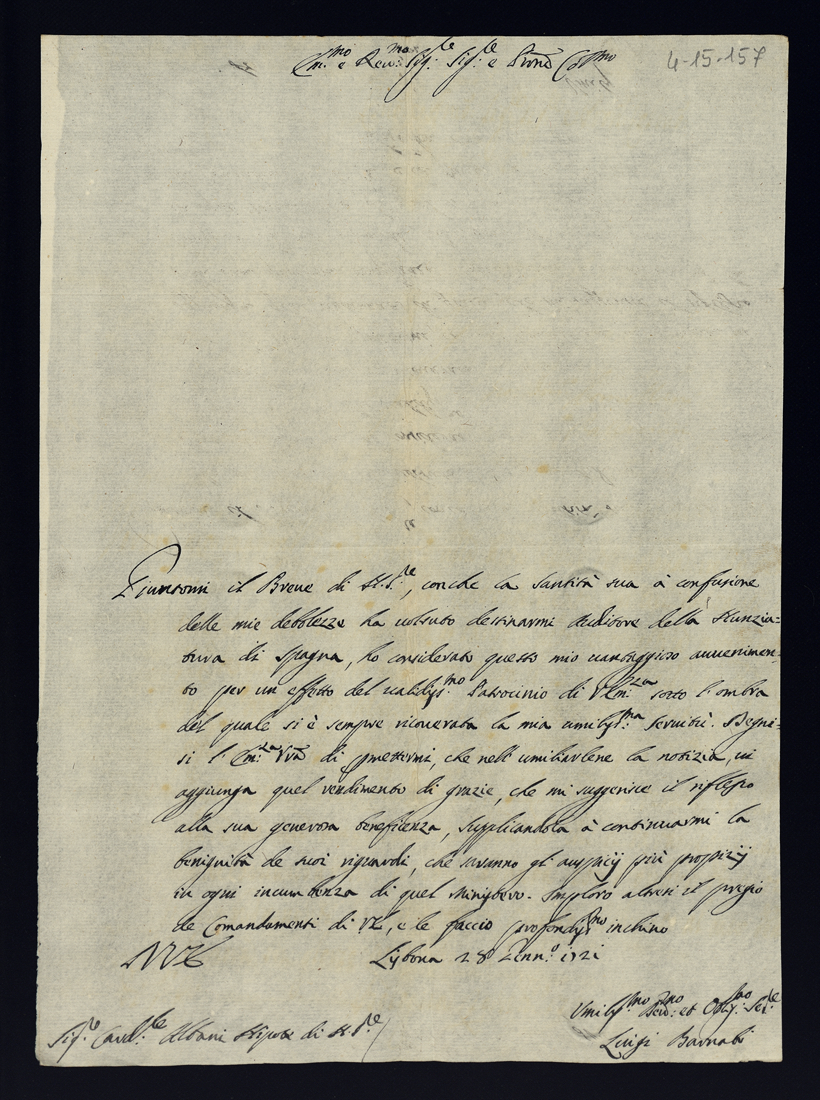 Em.mo e Rev.mo Sig.re Sig.re e Pron Col.mo
4-15-157
Giuntomi il Breve di N.S.re, con che la Santità sua à confusione
delle mie debolezze ha voluto destinarmi Auditore della Nunzia=
tura di Spagna, ho considerato questo mio vantaggioso avvenimen=
to per un effetto del validiss.mo Patrocinio di V.Em.za sotto l'ombra
del quale si è sempre ricoverata la mia umiliss.ma servitù. Degni=
si l'Em.za Vra di permettermi, che nell'umiliarlene la notizia, vi
aggiunga quel rendimento di grazie, che mi suggerisce il riflesso
alla sua generosa beneficenza, supplicandola à continuarmi la
benignità de suoi riguardi, che saranno gl'auspicij più propizij
in ogni incumbenza di quel Ministero. Imploro altresi il pregio
de Comandamenti di V.E., e le faccio profondiss.mo inchino
Lisbona 28 Genn.o 1721
Umiliss.mo Dev.mo et Oblig.mo Ser.re
Sig.re Card.le Albani Nipote di N.S.re
Luigi Barnabi